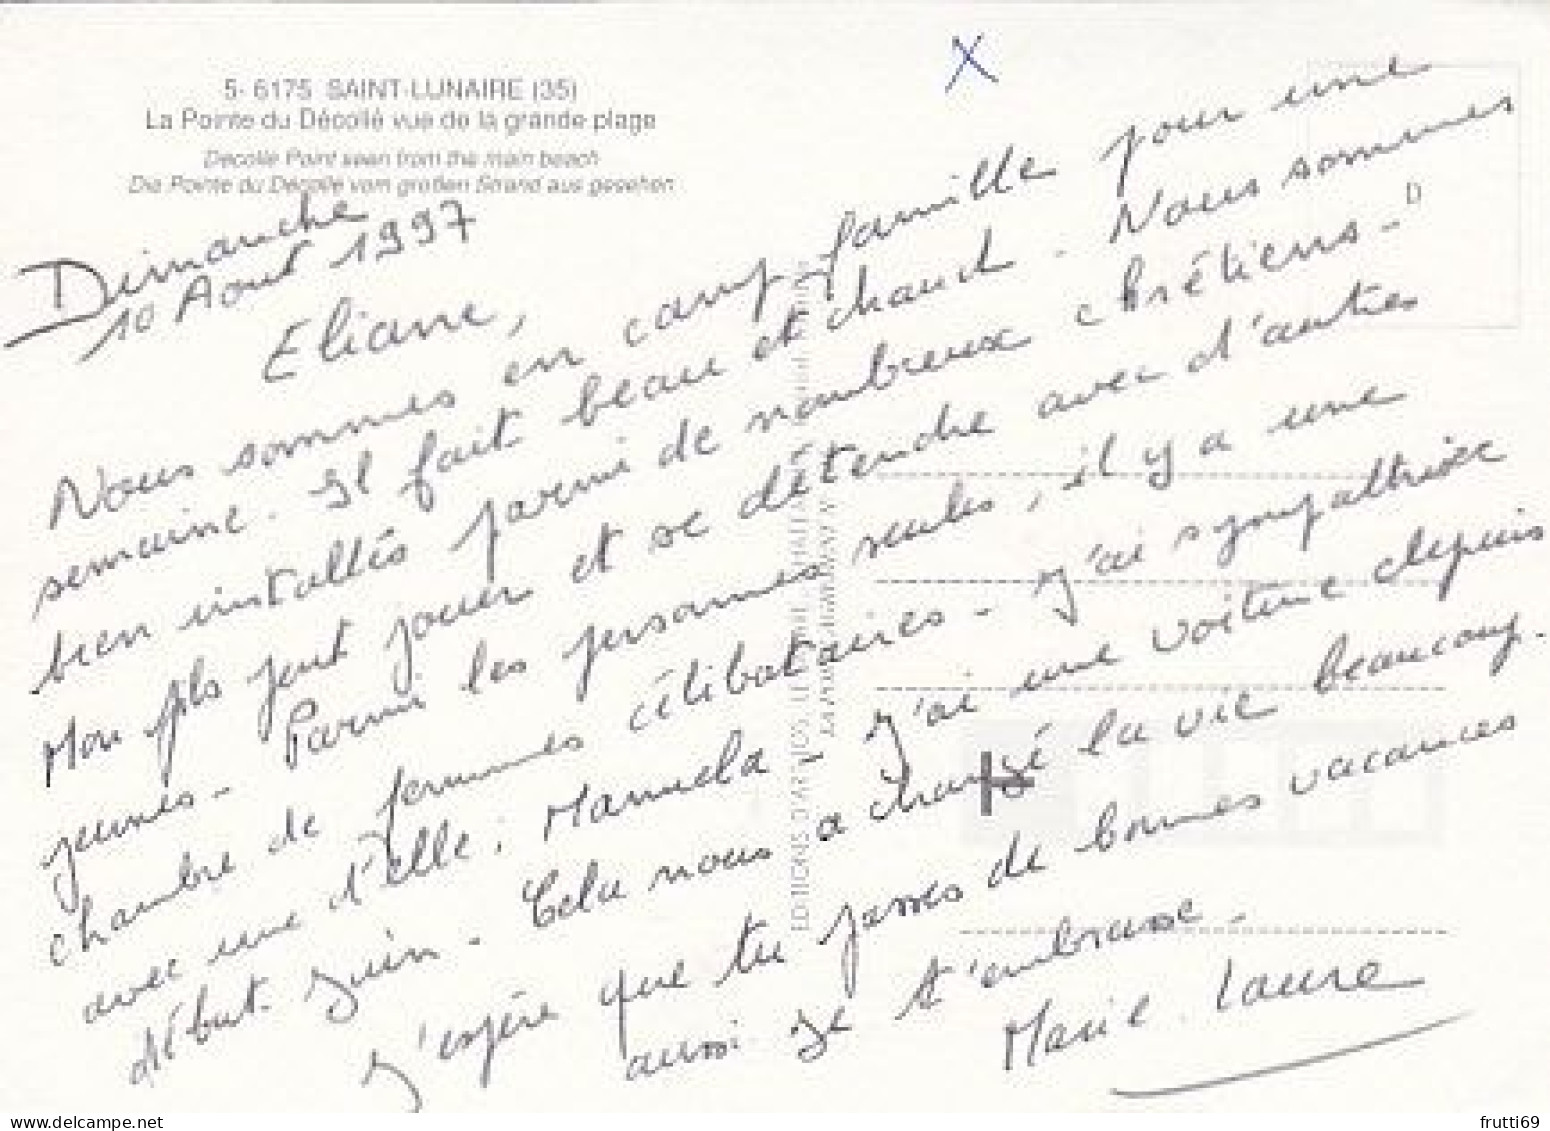 5- 6175 SAINT-LUNAIRE (35)
La Pointe du Décollé vue de la grande plage
Decolle Point seen from the main beach
Die Pointe du Décollé vom großen Strand aus gesehen
X
Dimanche
10 Août 1997
Eliane,
Nous sommes en camp famille pour une
semaine. Il fait beau et chaud. Nous sommes
bien installés parmi de nombreux chrétiens -
Mon fils peut jouer et se détendre avec d'autres
jeunes - Parmi les personnes seules, il y a une
chambre de femmes célibataires - J'ai sympathisé
avec une d'elle, Manuela - J'ai une voiture depuis
début Juin - Cela nous a changé la vie beaucoup.
J'espère que tu passes de bonnes vacances
aussi. Je t'embrasse -
Marie-Laure
EDITIONS D'ART
frutti69